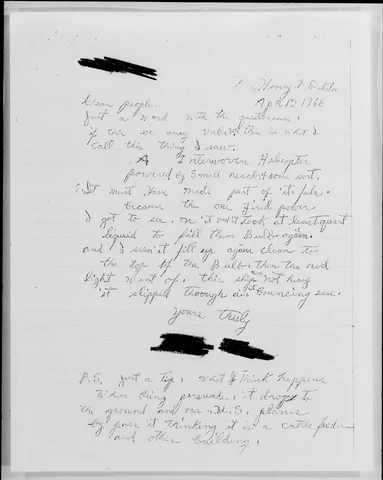 April 12 1966
Dear people.
Just a word with the
if this is any value this is what I
call this thing I saw.
A Interwoven Helicopter
powered by small reactor some sort.
It must have made part of its
because the one fired power
I got to see. on it and it took at least quart
liquid to fill them Bulbs again.
and I seen it fill up again clean to
the top of the Bulb. then the red
light went of. this ship not heavy
it slipped through air Bouncing
Yours truly
P.S. Just a tip, what I think happens
When being persuade, it drops to
the ground and our U.S. planes
by pass it thinking it is a cattle feeder
and other building.